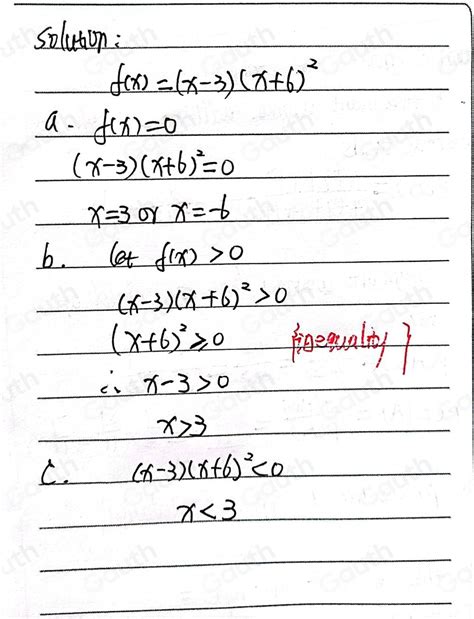 Solution:
f(x)=(x-3)(x+6)²
a. f(x)=0
(x-3)(x+6)²=0
x=3 or x=-6
b. let f(x)>0
(x-3)(x+6)²>0
(x+6)²≥0
∴ x-3>0
x>3
c. (x-3)(x+6)²<0
x<3
Gauth